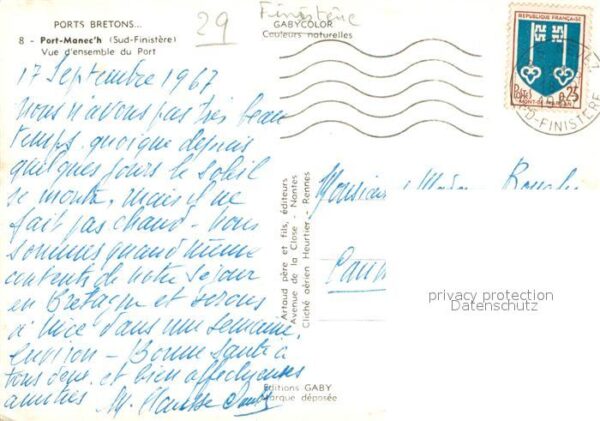 PORTS BRETONS...
8 - Port-Manec'h (Sud-Finistère)
Vue d'ensemble du Port
29
Finistère
GABYCOLOR
Couleurs naturelles
REPUBLIQUE FRANÇAISE
Postes 0,25
MONT-DE-MARSAN
D-FINISTERE
17 Septembre 1967
Nous n'avons pas très beau
temps. quoique depuis
quelques jours le soleil
se montre, mais il ne
fait pas chaud - nous
sommes quand même
contents de notre séjour
en Bretagne et serons
à Nice dans une semaine
environ - Bonne Santé à
tous deux et bien affectueuses
amitiés M.
Artaud père et fils, éditeurs
Avenue de la Close - Nantes
Cliché aérien Heurtier - Rennes
Monsieur Madame
privacy protection
Datenschutz
Editions GABY
Marque déposée